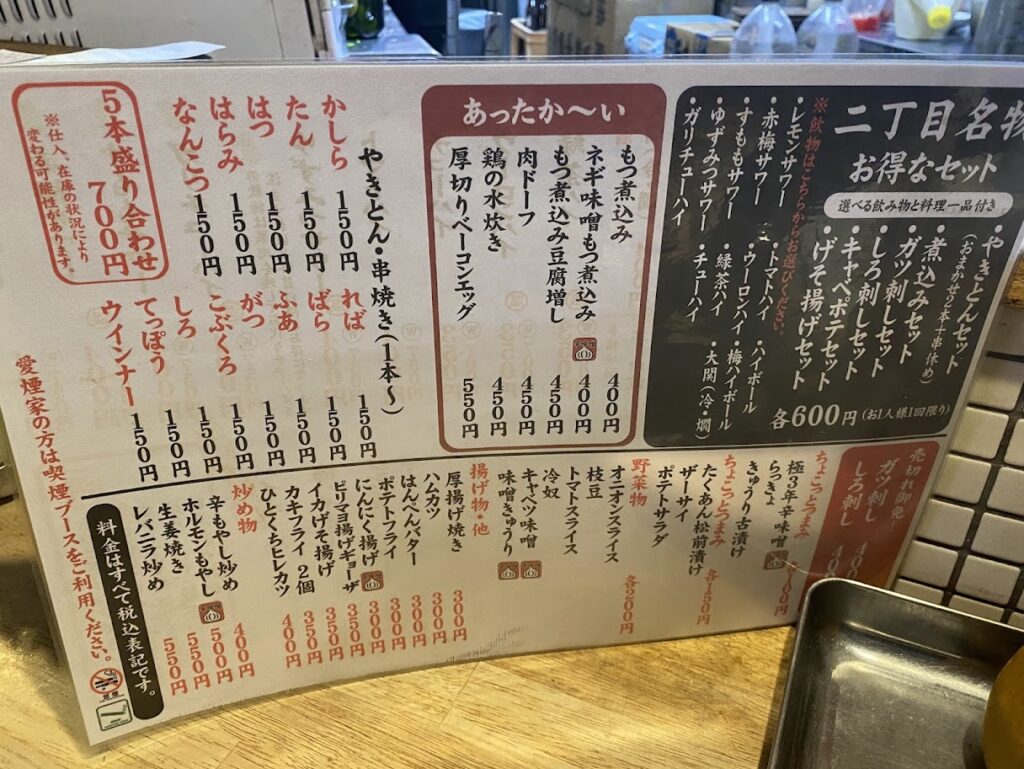 二丁目名物
お得なセット
選べる飲み物と料理一品付き
・やきとんセット
(おまかせ2本+串休め)
・煮込みセット
・ガツ刺しセット
・しろ刺しセット
・キャベポテセット
・げそ揚げセット
各600円(お1人様1回限り)
※飲み物はこちらからお選びください。
・レモンサワー
・赤梅サワー
・すももサワー
・ゆずみつサワー
・ガリチューハイ
・トマトハイ
・ウーロンハイ
・緑茶ハイ
・チューハイ
・ハイボール
・梅ハイボール
・大関(冷・燗)
あったか〜い
もつ煮込み 400円
ネギ味噌もつ煮込み 400円
もつ煮込み豆腐増し 450円
肉ドーフ 450円
鶏の水炊き 450円
厚切りベーコンエッグ 550円
やきとん・串焼き(1本〜)
かしら 150円
たん 150円
はつ 150円
はらみ 150円
なんこつ 150円
れば 150円
ばら 150円
ふあ 150円
がつ 150円
こぶくろ 150円
しろ 150円
てっぽう 150円
ウインナー 150円
5本盛り合わせ
700円
※仕入、在庫の状況により
変わる可能性があります。
売切れ御免!
ガツ刺し
しろ刺し
ちょこっとつまみ
極3年辛味噌
らっきょ
きゅうり古漬け
各100円
ちょこっとつまみ
たくあん松前漬け
ザーサイ
ポテトサラダ
各150円
野菜物
オニオンスライス
枝豆
トマトスライス
冷奴
キャベツ味噌
味噌きゅうり
各200円
揚げ物・他
厚揚げ焼き 300円
ハムカツ 300円
はんぺんバター 300円
ポテトフライ 300円
にんにく揚げ 300円
ピリマヨ揚げギョーザ 350円
イカげそ揚げ 350円
カキフライ 2個 350円
ひとくちヒレカツ 400円
炒め物
辛もやし炒め 400円
ホルモンもやし 500円
生姜焼き 500円
レバニラ炒め 550円
料金はすべて税込表記です。
愛煙家の方は喫煙ブースをご利用ください。